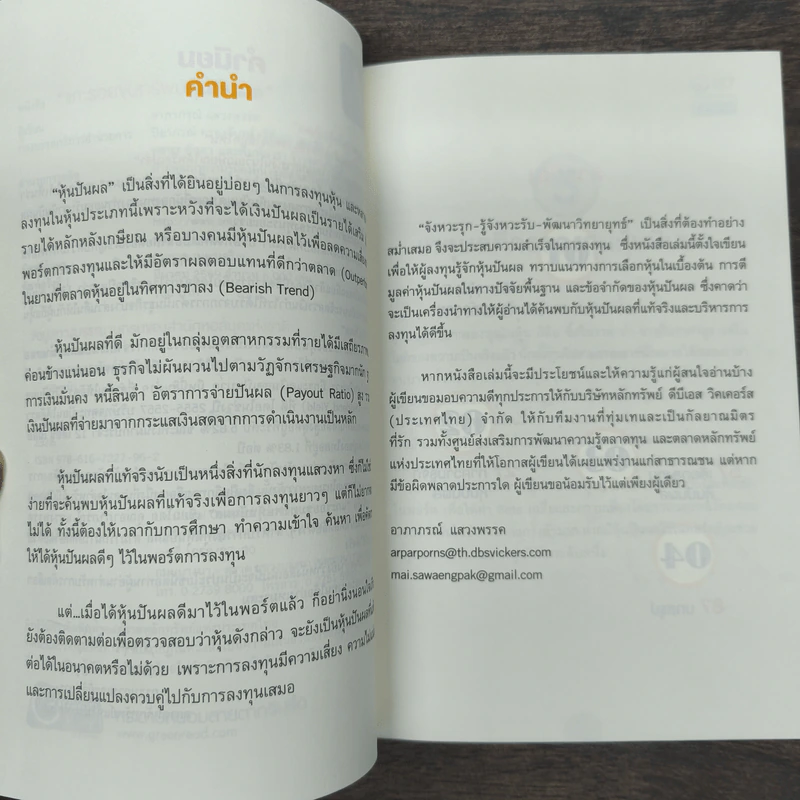 คำนำ
“หุ้นปันผล” เป็นสิ่งที่ได้ยินอยู่บ่อยๆ ในการลงทุนหุ้น
ลงทุนในหุ้นประเภทนี้เพราะหวังที่จะได้เงินปันผลเป็นรายได้เสริม
รายได้หลักหลังเกษียณ หรือบางคนมีหุ้นปันผลไว้เพื่อลดความเสี่ยง
พอร์ตการลงทุนและให้มีอัตราผลตอบแทนที่ดีกว่าตลาด
ในยามที่ตลาดหุ้นอยู่ในทิศทางขาลง (Bearish Trend)
หุ้นปันผลที่ดี มักอยู่ในกลุ่มอุตสาหกรรมที่รายได้มีเสถียรภาพ
ค่อนข้างแน่นอน ธุรกิจไม่ผันผวนไปตามวัฏจักรเศรษฐกิจมากนัก
การเงินมั่นคง หนี้สินต่ำ อัตราการจ่ายปันผล (Payout Ratio) สูง
เงินปันผลที่จ่ายมาจากกระแสเงินสดจากการดำเนินงานเป็นหลัก
หุ้นปันผลที่แท้จริงนับเป็นหนึ่งสิ่งที่นักลงทุนแสวงหา ซึ่งก็ไม่ใช่
ง่ายที่จะค้นพบหุ้นปันผลที่แท้จริงเพื่อการลงทุนยาวๆ แต่ก็ไม่ยาก
ไม่ได้ ทั้งนี้ต้องให้เวลากับการศึกษา ทำความเข้าใจ ค้นหา
ให้ได้หุ้นปันผลดีๆ ไว้ในพอร์ตการลงทุน
แต่...เมื่อได้หุ้นปันผลดีมาไว้ในพอร์ตแล้ว ก็อย่านิ่งนอนใจ
ยังต้องติดตามต่อเพื่อตรวจสอบว่าหุ้นดังกล่าว จะยังเป็นหุ้นปันผลที่
ต่อได้ในอนาคตหรือไม่ด้วย เพราะการลงทุนมีความเสี่ยง
และการเปลี่ยนแปลงควบคู่ไปกับการลงทุนเสมอ
“จังหวะรุก-รู้จังหวะรับ-พัฒนาวิทยายุทธ์” เป็นสิ่งที่ต้องทำอย่าง
สม่ำเสมอ จึงจะประสบความสำเร็จในการลงทุน ซึ่งหนังสือเล่มนี้ตั้งใจเขียน
เพื่อให้ผู้ลงทุนรู้จักหุ้นปันผล ทราบแนวทางการเลือกหุ้นในเบื้องต้น การตี
มูลค่าหุ้นปันผลในทางปัจจัยพื้นฐาน และข้อจำกัดของหุ้นปันผล ซึ่งคาดว่า
จะเป็นเครื่องนำทางให้ผู้อ่านได้ค้นพบกับหุ้นปันผลที่แท้จริงและบริหารการ
ลงทุนได้ดีขึ้น
หากหนังสือเล่มนี้จะมีประโยชน์และให้ความรู้แก่ผู้สนใจอ่านบ้าง
ผู้เขียนขอมอบความดีทุกประการให้กับบริษัทหลักทรัพย์ ดีบีเอส วิคเคอร์ส
(ประเทศไทย) จำกัด ให้กับทีมงานที่ทุ่มเทและเป็นกัลยาณมิตร
ที่รัก รวมทั้งศูนย์ส่งเสริมการพัฒนาความรู้ตลาดทุน และตลาดหลักทรัพย์
แห่งประเทศไทยที่ให้โอกาสผู้เขียนได้เผยแพร่งานแก่สาธารณชน แต่หาก
มีข้อผิดพลาดประการใด ผู้เขียนขอน้อมรับไว้แต่เพียงผู้เดียว
อาภาภรณ์ แสวงพรรค
arparporns@th.dbsvickers.com
mai.sawaengpak@gmail.com